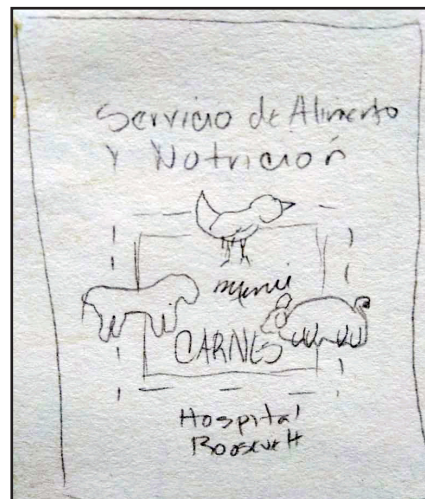 Servicio de Alimento
y Notrición
menú
CARNES
Hospital
Roosevelt